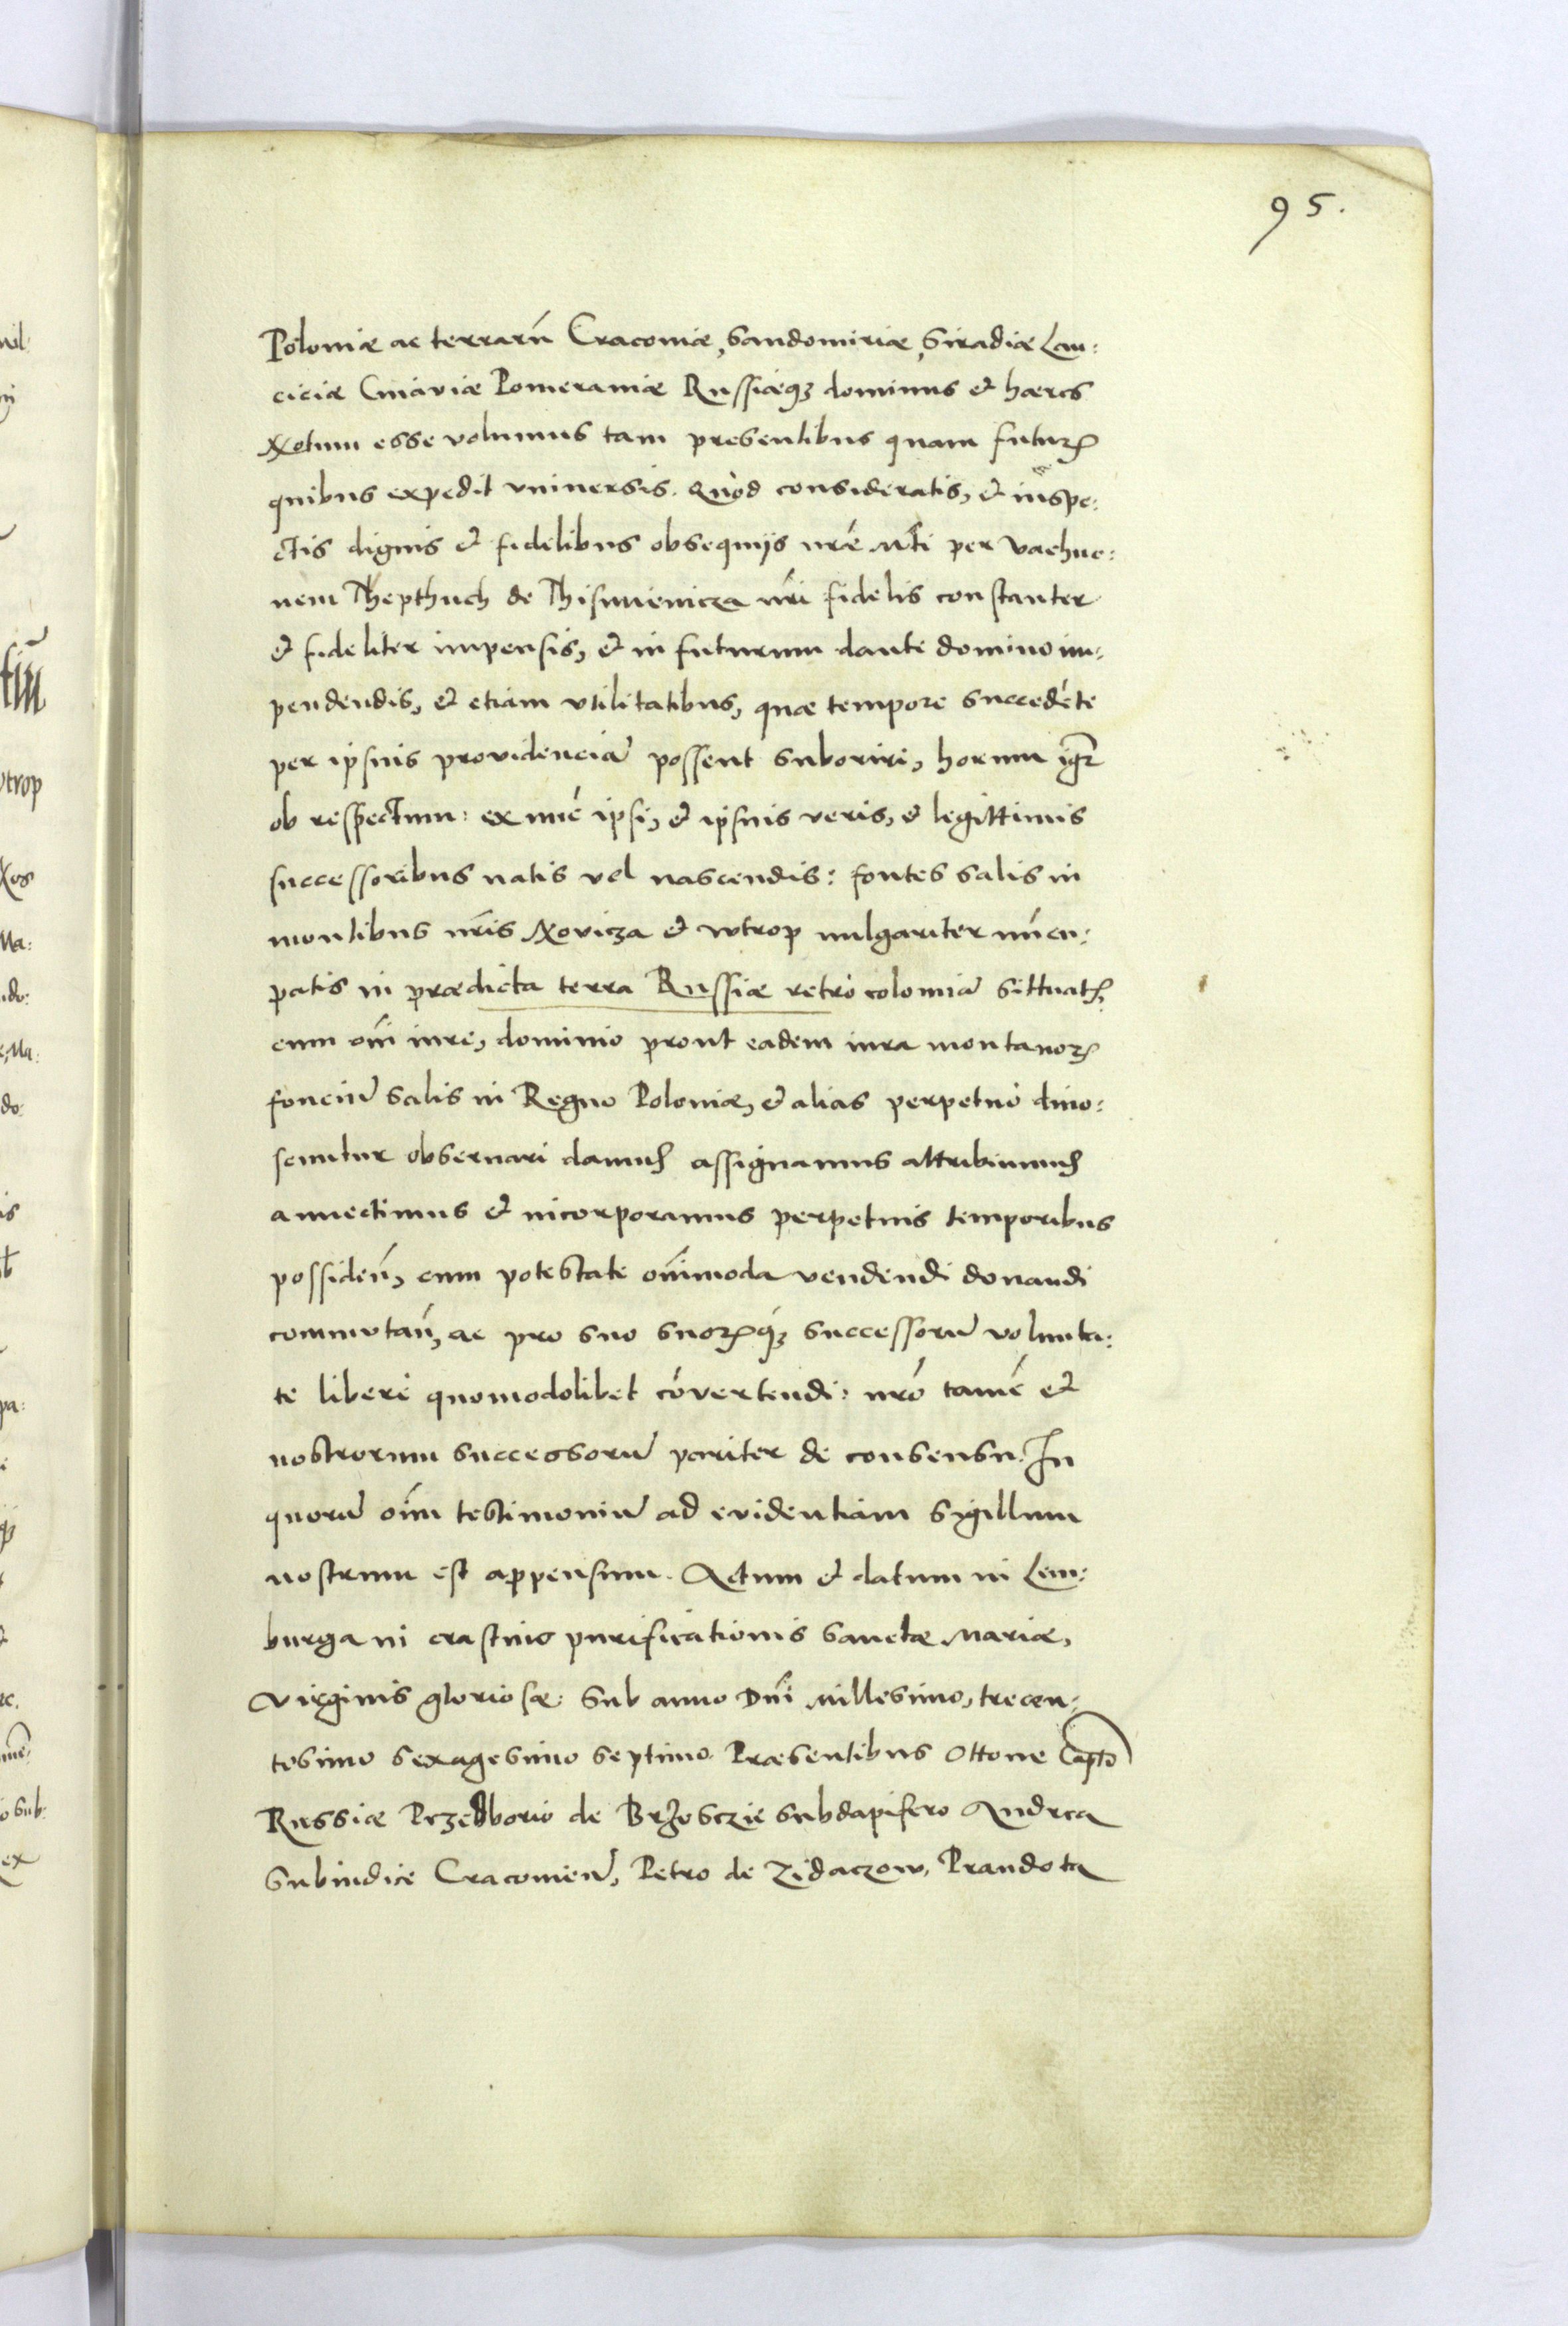 95.
Poloniæ ac terrarū Cracouiæ, Sandomiriæ, Siradiæ Lan:
ciciæ Cuiaviæ Pomeraniæ Russiæq3 dominus et hæres
Notum esse volumus tam presentibus quam futurꝝ
quibus expedit vniuersis. Quòd consideratis, et inspe:
ctis dignis et fidelibus obsequijs nr̃e Mti per Vachne:
nem Thepthuch de Thismienicza nr̃i fidelis constanter
et fideliter impensis, et in futurum dante domino im:
pendendis, et etiam vtilitatibus, quæ tempore succedēte
per ipsius providenciā possent suboriri, horum igr̃
ob respectum: ex nūc ipsi, et ipsius veris, et legittimis
successoribus natis vel nascendis: fontes salis in
montibus nr̃is Novicza et wtrop uulgariter nūcu:
patis in prædicta terra Russiæ retrò colomiā sittuatꝭ,
cum om̄i iure, dominio prout eadem iura montanoꝝ
fonciū salis in Regno Poloniæ, et alias perpetuò dino:
scuntur obseruari damus assignamus attribuimus
annectimus et incorporamus perpetuis temporibus
possideñ, cum potestate om̄imoda vendendi donandi
commutañ, ac pro suo suoꝝq3 successorū volunta:
te liberè quomodolibet cōvertendi: nr̃o tamē et
nostrorum successorū pariter de consensu. In
quorū oīm testimoniū ad evidentiam sigillum
nostrum est appensum. Actum et datum in Lem:
burga in crastino purificationis Sanctæ Mariæ,
Virginis gloriosæ: Sub anno Dn̄i Millesimo, trecen:
tesimo sexagesimo septimo. Præsentibus Ottone Capto
Russiæ Przedborio de Brzosczie subdapifero Andrea
Subiudice Cracouieñ, Petro de Zidaczow, Prandota